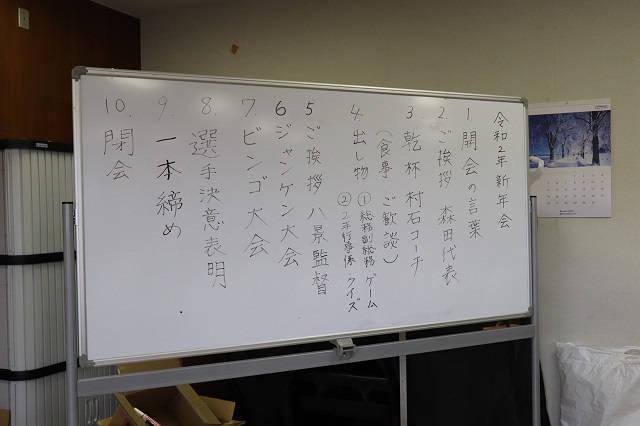 令和2年新年会
1. 開会の言葉
2. ご挨拶 森田代表
3. 乾杯 村石コーチ
(食事 ご歓談)
4. 出し物 ① 総務副総務 ゲーム
② 2年行事係・クイズ
5 ご挨拶 八景監督
6 ジャンケン大会
7. ビンゴ大会
8. 選手決意表明
9. 一本締め
10. 閉会